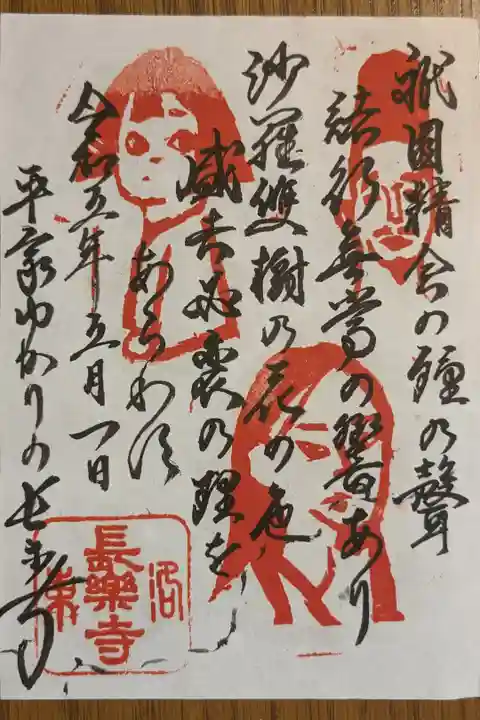 祇園精舎の鐘の聲
諸行無常の響あり
沙羅雙樹の花の色
盛者必衰の理を
あらわす
令和五年五月一日
平家ゆかりの長楽寺
長樂寺
洛東